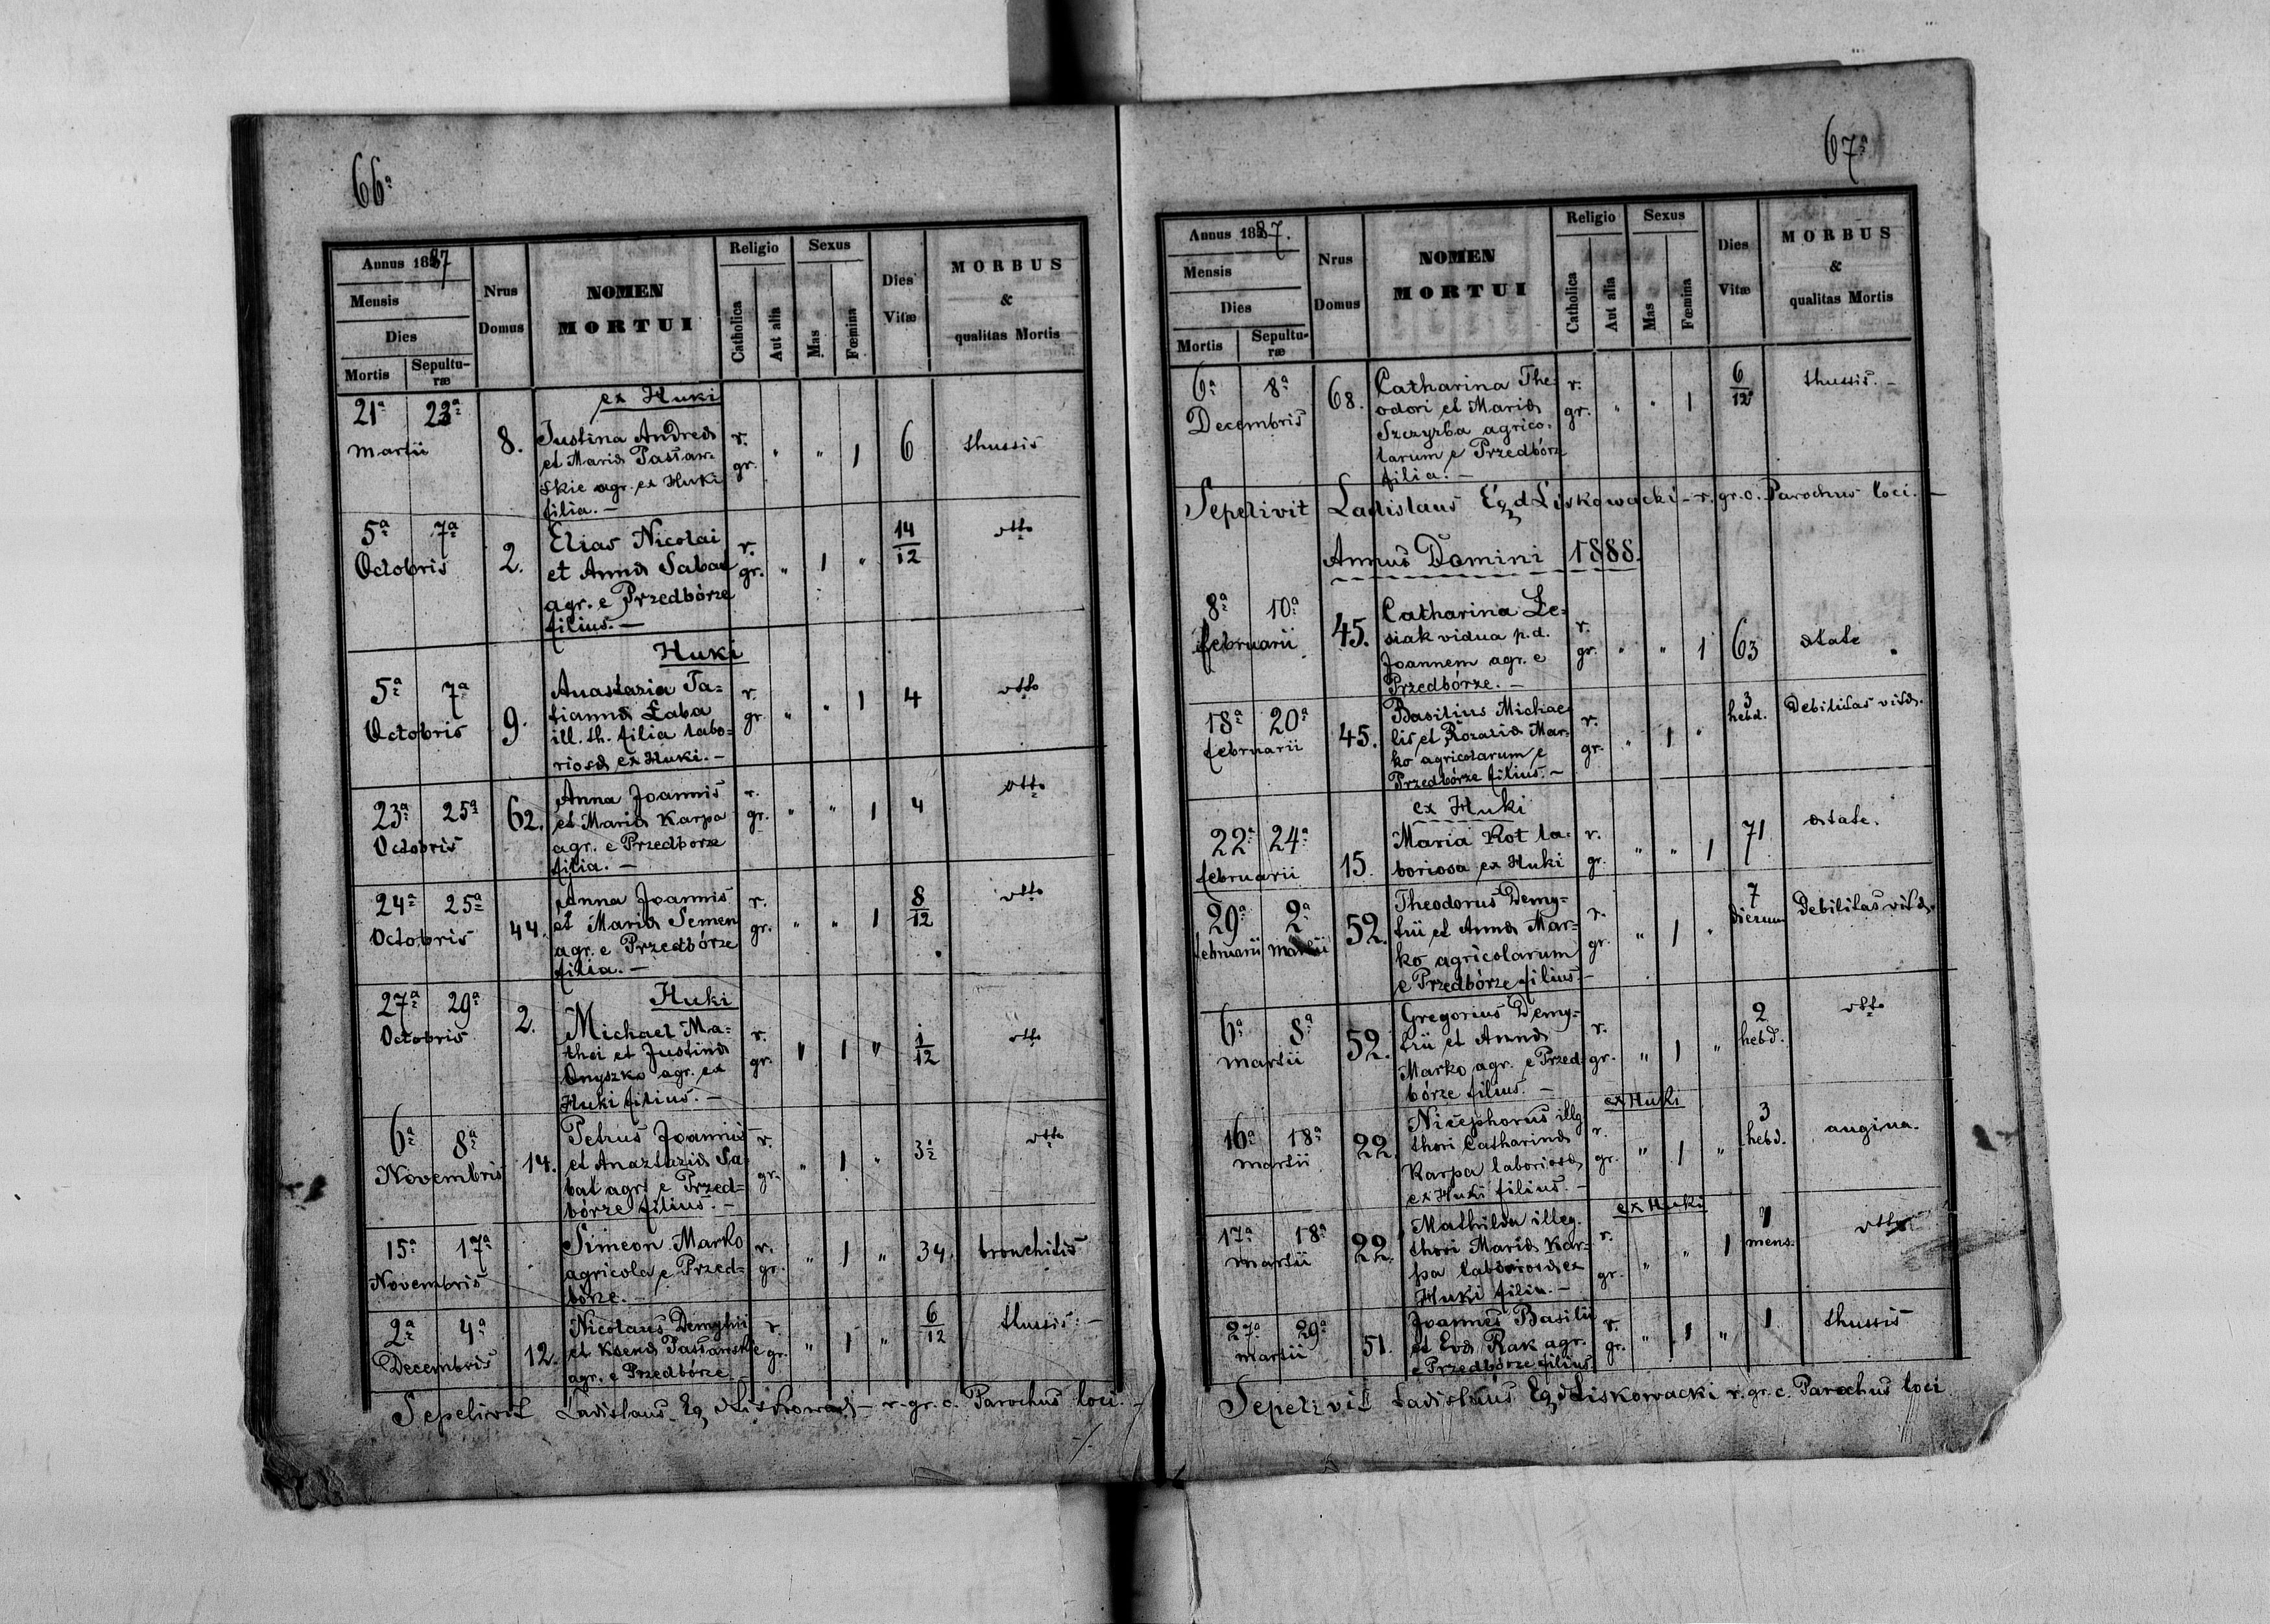 66ª
Annus 1887
Mensis
Dies
Mortis
Sepultu-
ræ
Nrus
Domus
NOMEN
MORTUI
Religio
Catholica
Aut alia
Sexus
Mas
Fœmina
Dies
Vitæ
MORBUS
&
qualitas Mortis
ex Huki
21ª 23ª
Martii
8.
Justina Andreæ
et Mariæ Pastar-
skie agr. ex Huki
filia. –
r.
gr.
" " 1 6 thussis
5ª 7ª
Octobris
2.
Elias Nicolai
et Annæ Sabat
agr. e Przedbórze
filius. –
r.
gr.
" 1 "
14
12
dtto
Huki
5ª 7ª
Octobris
9.
Anastazia Ta=
tiannæ Łaba
ill. th. filia labo=
riosæ ex Huki. –
r.
gr.
" " 1 4 dtto
23ª 25ª
Octobris
62.
Anna Joannis
et Mariæ Karpa
agr. e Przedborze
filia. –
r.
gr.
" " 1 4 dtto
24ª 25ª
Octobris
44.
Anna Joannis
et Mariæ Semen
agr. e Przedbórze
filia. –
r.
gr.
" " 1
8
12
dtto
Huki
27ª 29ª
Octobris
2.
Michael Ma=
thei et Justinæ
Onyszko agr. ex
Huki filius. –
r.
gr.
" 1 "
1
12
dtto
6ª 8ª
Novembris
14.
Petrus Joannis
et Anaztaziæ Sa=
bat agr. e Przed=
bórze filius. –
r.
gr.
" 1 " 3½ dtto
15ª 17ª
Novembris
Simeon Marko
agricola e Przed=
bórze. –
r.
gr.
" 1 " 34. bronchitis
2ª 4ª
Decembris
12.
Nicolaus Demytrii
et Kseniæ Pastarskie
agr. e Przedbórze. –
r.
gr.
" 1 "
6
12
thussis. –
Sepelivit Ladislaus Eq d Liskowacki – r. gr. c. Parochus loci. –
67ª
Annus 1887.
Mensis
Dies
Mortis
Sepultu-
ræ
Nrus
Domus
NOMEN
MORTUI
Religio
Catholica
Aut alia
Sexus
Mas
Fœmina
Dies
Vitæ
MORBUS
&
qualitas Mortis
6ª 8ª
Decembris
68.
Catharina The=
odori et Mariæ
Szczyrba agrico=
larum e Przedbórz
filia. –
r.
gr.
" " 1
6
12
thussis. –
Sepelivit Ladislaus Eq d Liskowacki – r. gr. c. Parochus loci. –
Annus Domini 1888.
8ª 10ª
februarii
45.
Catharina Le=
siak vidua p. d.
Joannem agr. e
Przedbórze. –
r.
gr.
" " 1 63 ætate
18ª 20ª
februarii
45.
Basilius Michae
lis et Rozaliæ Mar=
ko agricolarum e
Przedbórze filius. –
r.
gr.
" 1 "
3
hebd.
Debilitas vitæ.
ex Huki
22ª 24ª
februarii
15.
Maria Kot la=
boriosa ex Huki
r.
gr.
" " 1 71 ætate.
29ª 2ª
februarii martii
52.
Theodorus Demy=
trii et Annæ Mar=
ko agricolarum
e Przedbórze filius. –
r.
gr.
" 1 "
7
dierum
Debilitas vitæ.
6ª 8ª
martii
52.
Gregorius Demy=
trii et Annæ
Marko agr. e Przed=
bórze filius. –
r.
gr.
" 1 "
2
hebd.
dtto
ex Huki
16ª 18ª
martii
22.
Nicephorus illg
thori Catharinæ
Karpa laboriosæ
ex Huki filius. –
r.
gr.
" 1 "
3
hebd.
angina.
ex Huki
17ª 18ª
martii
22.
Mathilda illeg.
thori Mariæ Kar=
pa laboriosæ ex
Huki filia. –
r.
gr.
" " 1
mens.
dtto
27ª 29ª
martii
51.
Joannes Basilii
et Evæ Rak agr.
e Przedbórze filius.
r.
gr.
" 1 " 1 thussis
Sepelivit Ladislaus Eq d Liskowacki r. gr. c. Parochus loci